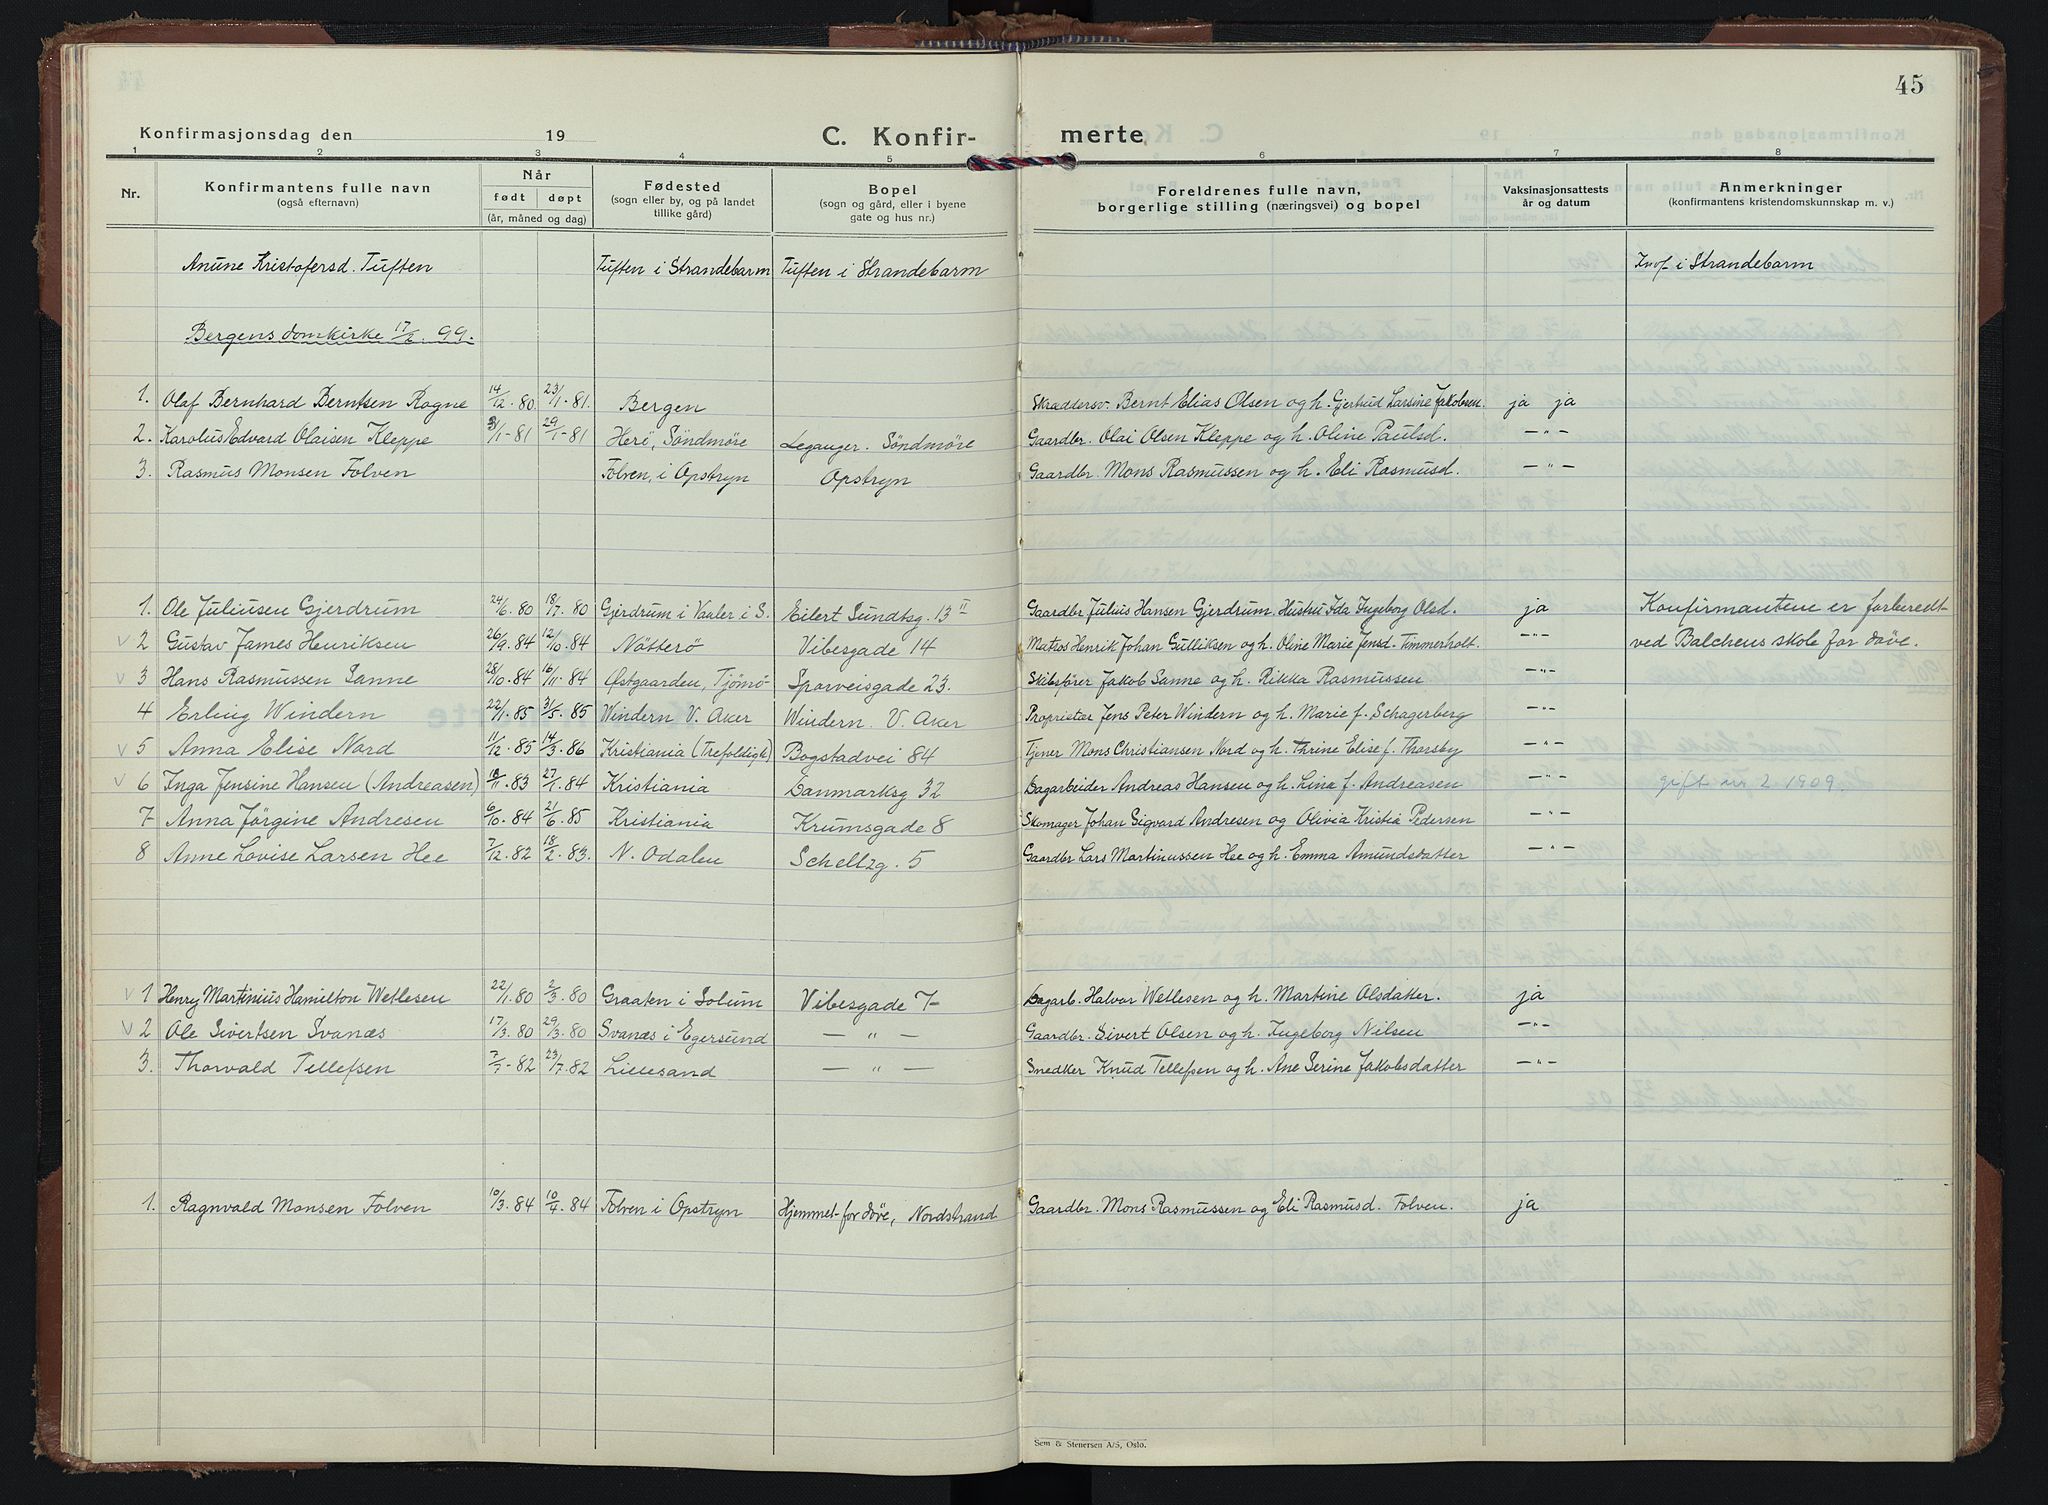 45
Konfirmasjonsdag den 19
C. Konfir- merte
1 2 3 4 5 6 7 8
Nr.
Konfirmantens fulle navn
(også efternavn)
Når
født døpt
(år, måned og dag)
Fødested
(sogn eller by, og på landet
tillike gård)
Bopel
(sogn og gård, eller i byene
gate og hus nr.)
Foreldrenes fulle navn,
borgerlige stilling (næringsvei) og bopel
Vaksinasjonsattests
år og datum
Anmerkninger
(konfirmantens kristendomskunnskap m. v.)
Anune Kristofersd. Tuften Tuften i Strandebarm Tuften i Strandebarm i Strandebarm
Bergens domkirke 17/2 99.
1. Olaf Bernhard Berntsen Rogne 14/12.80. 23/1.81. Bergen Skraddersv. Bernt Elias Olsen og h. Gjertrud Larsine Jakobsen. ja ja
2. Karolus Edvard Olaisen Kleppe 3/1-81 29/1-81 Herö, Söndmöre Leganger. Söndmöre Gaardbr. Olai Olsen Kleppe og h. Oline Paulsd. — " —
3. Rasmus Monsen Folven Folven, i Opstryn Opstryn Gaardbr. Mons Rasmussen og h. Eli Rasmusd. — " —
1. Ole Juliusen Gjerdrum 24/6.80 18/7.80 Gjerdrum i Vaaler i S. Eilert Sundtsg. 13 II Gaardbr Julius Hansen Gjerdrum. Hustru Ida Ingeborg Olsd. ja Konfirmantene er forberedt
v 2 Gustav James Henriksen 26/9.84 12/10.84 Nötterö Vibesgade 14 Matros Henrik Johan Gulliksen og h. Oline Marie Jensd. Timmerholt. — " — ved Balchens skole for døve.
v 3 Hans Rasmussen Sanne 28/10.84 16/11.84 Østgaarden, Tjömö Sporveisgade 23. Skibsfører Jakob Sanne og h. Rikka Rasmussen — " —
4 Erling Windern 22/1.85 31/5.85 Windern V. Aker Windern. V. Aker Proprietær Jens Peter Windern og h. Marie f. Schagerberg — " —
v 5 Anna Elise Nord 11/12.85 14/3.86 Kristiania (Trefoldigh) Bogstadvei 84 Tjener Mons Christiansen Nord og h. Thrine Elise f. Thorsby — " —
v 6 Inga Jensine Hansen (Andreasen) 18/11.83 27/1.84 Kristiania Danmarksg 32 Dagarbeider Andreas Hansen og h. Lina f. Andreasen — " — gift 2 1909.
7 Anna Jörgine Andresen 6/10.84 21/6.85 Kristiania Krumsgade 8 Skomager Johan Sigvard Andresen og Olivia Kristia Pedersen — " —
8 Anne Lovise Larsen Hee 7/12.82 18/2.83. N. Odalen Scheltzg. 5 Gaardbr Lars Martinussen Hee og h. Emma Amundsdatter — " —
v 1 Henry Martinius Hamilton Wetlesen 22/1.80 2/3.80 Graaten i Solum Vibesgade 7 Dagarb. Halvor Wetlesen og h. Martine Olsdatter. ja
v 2 Ole Sivertsen Svanæs 17/3.80 29/3.80 Svanæs i Egersund — " — Gaardbr. Sivert Olsen og h. Ingeborg Nilsen — " —
3. Thorvald Tellefsen 7/7-82 23/7.82 Lillesand — " — Snedker Knud Tellefsen og h. Ane Serine Jakobsdatter — " —
1. Ragnvald Monsen Folven 10/3.84 10/4.84 Folven i Opstryn Hjemmet for døve, Nordstrand Gaardbr. Mons Rasmussen og Eli Rasmusd. Folven. ja
Sem & Stenersen A/S, Oslo.